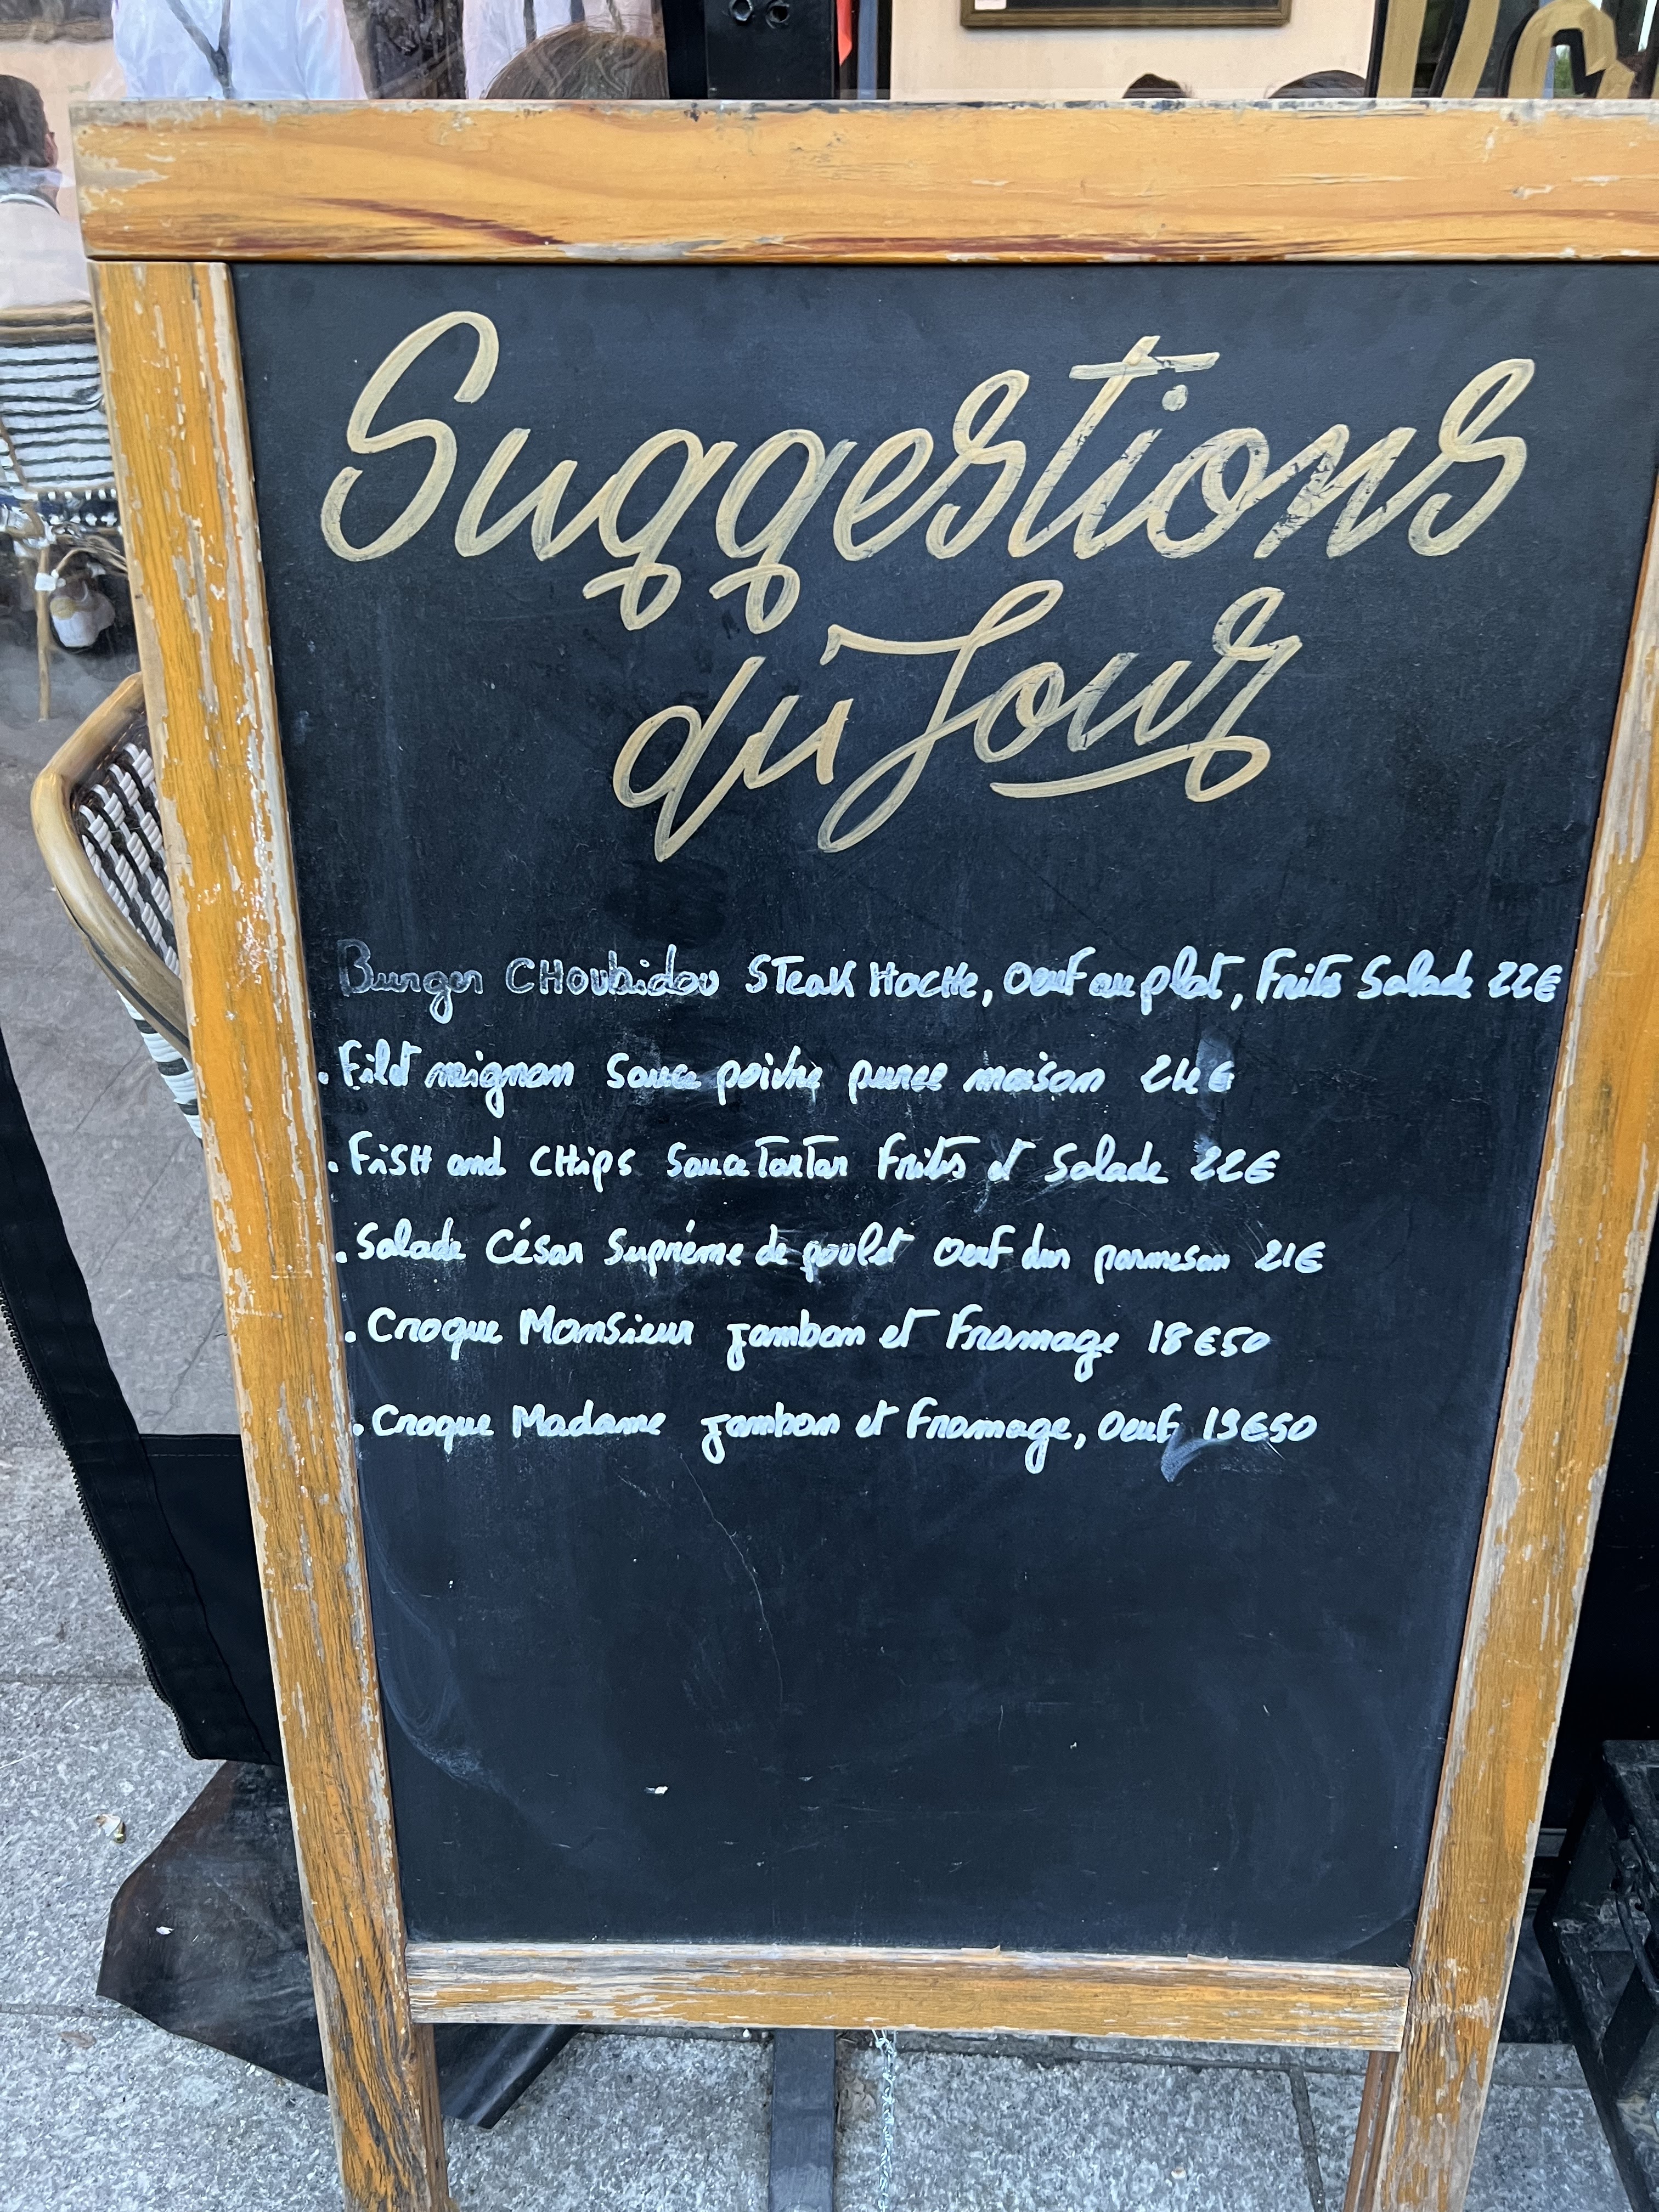 Suggestions
du Jour
Burger CHoubidou STeak HacHe, Oeuf au plat, Frites Salade 22€
. Filet mignon Sauce poivre puree maison 24€
. FiSH and CHips Sauce TarTar Frites et Salade 22€
. Salade César Suprême de poulet Oeuf dur parmesan 21€
. Croque Monsieur Jambon et Fromage 18€50
. Croque Madame Jambon et Fromage, Oeuf 19€50